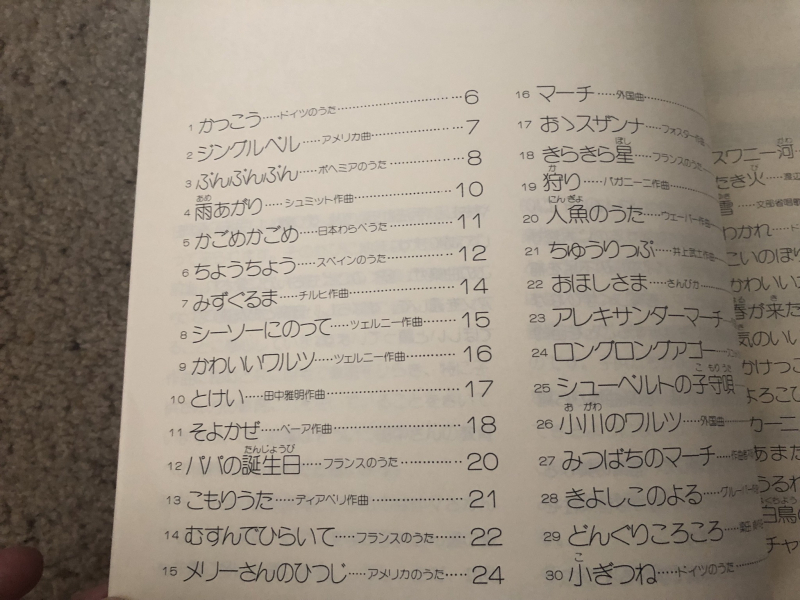 1 かっこう……ドイツのうた………6
2 ジングルベル……アメリカ曲………7
3 ぶんぶんぶん……ボヘミアのうた………8
4 雨あがり……シュミット作曲………10
5 かごめかごめ……日本わらべうた………11
6 ちょうちょう……スペインのうた………12
7 みずぐるま……チルヒ作曲………14
8 シーソーにのって……ツェルニー作曲………15
9 かわいいワルツ……ツェルニー作曲………16
10 とけい……田中雅明作曲………17
11 そよかぜ……ベーア作曲………18
12 パパの誕生日……フランスのうた………20
13 こもりうた……ディアベリ作曲………21
14 むすんでひらいて……フランスのうた………22
15 メリーさんのひつじ……アメリカのうた……24
16 マーチ……外国曲
17 おゝスザンナ……フォスター作曲
18 きらきら星……フランスのうた
19 狩り……パガニーニ作曲
20 人魚のうた……ウェーバー作曲
21 ちゅうりっぷ……井上武士作曲
22 おほしさま……さんびか
23 アレキサンダーマーチ
24 ロングロングアゴー
25 シューベルトの子守唄
26 小川のワルツ……外国曲
27 みつばちのマーチ
28 きよしこのよる……グルーバー
29 どんぐりころころ
30 小ぎつね……ドイツのうた
スワニー河
たき火
雪……文部省唱歌
わかれ
こいのぼり
かわいい
春が来た
気のいい
かけっこ
よろこび
カーニ
あまだ
うるわ
白鳥の
チャ